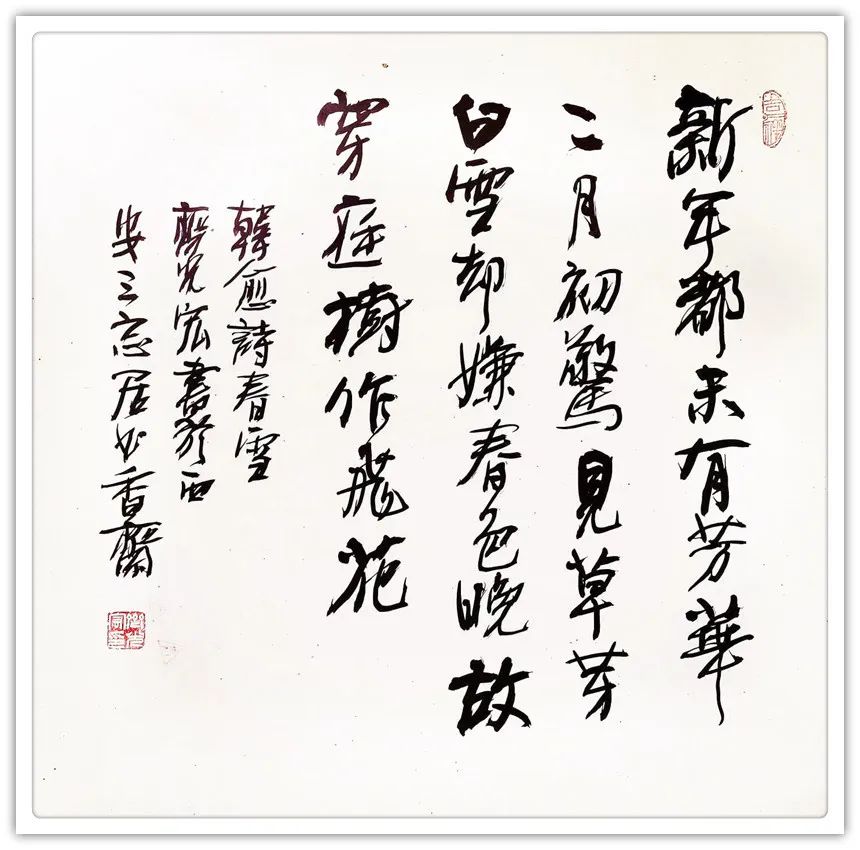 吉祥
新年都未有芳華
二月初驚見草芽
白雪却嫌春色晚故
穿庭樹作飛花
韓愈詩春雪
光宏書於西
安三忘居书香齋